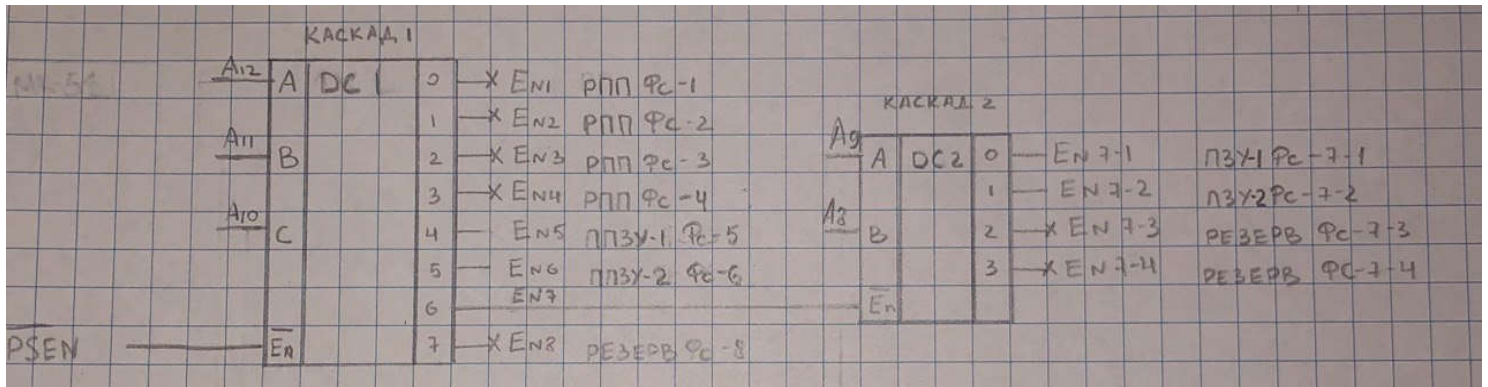 КАСКАД 1
A12 A DC1 0 EN1 РПП Фс-1
1 EN2 РПП Фс-2
A11 B 2 EN3 РПП Фс-3
3 EN4 РПП Фс-4
A10 C 4 EN5 ППЗУ-1 Фс-5
5 EN6 ППЗУ-2 Фс-6
6 EN7
PSEN En 7 EN8 РЕЗЕРВ Фс-8
КАСКАД 2
A9 A DC2 0 EN 7-1 ПЗУ-1 Фс-7-1
1 EN 7-2 ПЗУ-2 Фс-7-2
A8 B 2 EN 7-3 РЕЗЕРВ Фс-7-3
3 EN 7-4 РЕЗЕРВ Фс-7-4
En